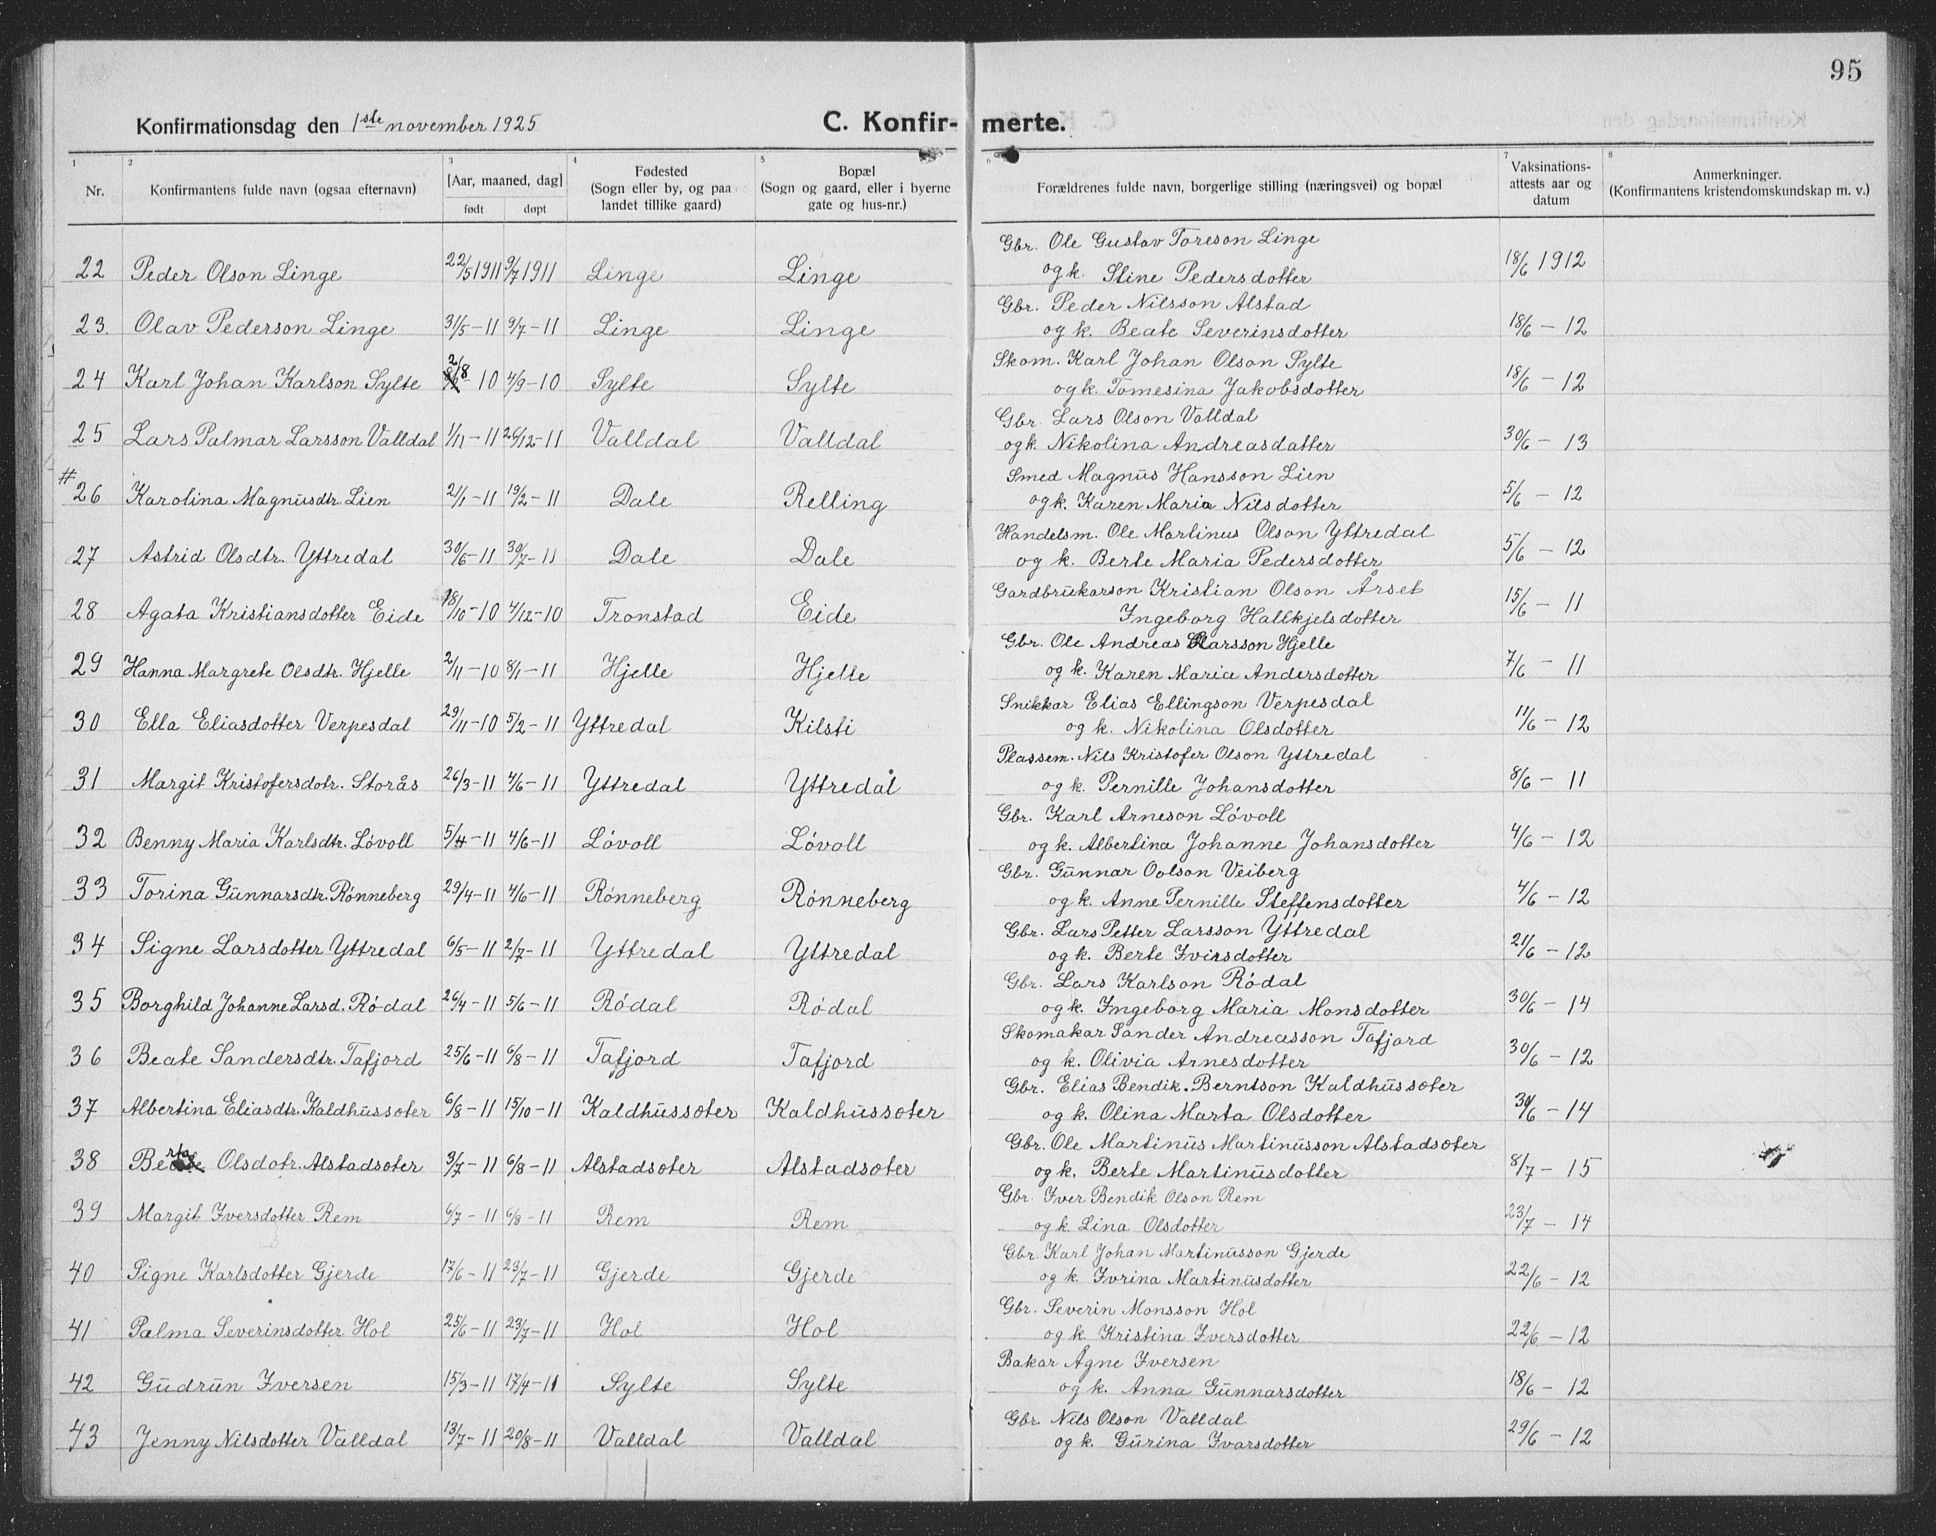 95
Konfirmationsdag den 1ste november 1925 C. Konfir- merte.
1 2 3 4 5 6 7 8
Nr. Konfirmantens fulde navn (ogsaa efternavn) [Aar, maaned, dag] født døpt Fødested (Sogn eller by, og paa landet tillike gaard) Bopæl (Sogn og gaard, eller i byerne gate og hus-nr.) Forældrenes fulde navn, borgerlige stilling (næringsvei) og bopæl Vaksinations-attests aar og datum Anmerkninger. (Konfirmantens kristendomskundskap m. v.)
Gbr. Ole Gustav Toreson Linge
22 Peder Olson Linge 22/5 1911 9/7 1911 Linge Linge og k. Stine Pedersdotter 18/6 1912
Gbr. Peder Nilsson Alstad
23. Olav Pederson Linge 31/5-11 9/7-11 Linge Linge og k. Beate Severinsdotter 18/6-12
Skom. Karl Johan Olson Sylte
24 Karl Johan Karlson Sylte 2/8-10 4/9-10 Sylte Sylte og k. Tomesina Jakobsdotter 18/6-12
Gbr. Lars Olson Valldal
25 Lars Palmar Larsson Valldal 1/11-11 26/12-11 Valldal Valldal og k. Nikolina Andreasdatter 30/6-13
Smed Magnus Hansson Lien
# 26 Karolina Magnusdtr. Lien 2/1-11 19/2-11 Dale Relling og k. Karen Maria Nilsdotter 5/6-12
Handelsm. Ole Martinus Olson Yttredal
27 Astrid Olsdtr. Yttredal 30/6-11 30/7-11 Dale Dale og k. Berte Maria Pedersdotter 5/6-12
Gardbrukarson Kristian Olson Årset
28 Agata Kristiansdotter Eide 18/10-10 4/12-10 Tronstad Eide Ingeborg Hallkjelsdotter 15/6-11
Gbr. Ole Andreas Larsson Hjelle
29 Hanna Margrete Olsdtr. Hjelle 2/11-10 8/1-11 Hjelle Hjelle og k. Karen Maria Andersdotter 7/6-11
Snikkar Elias Ellingson Verpesdal
30 Ella Eliasdotter Verpesdal 29/11-10 5/2-11 Yttredal Kilsti og k. Nikolina Olsdotter 11/6-12
Plassem. Nils Kristofer Olson Yttredal
31 Margit Kristofersdotr. Storås 26/3-11 4/6-11 Yttredal Yttredal og k. Pernille Johansdotter 8/6-11
Gbr. Karl Arneson Lóvoll
32 Benny Maria Karlsdtr. Lóvoll 5/4-11 4/6-11 Lóvoll Lóvoll og k. Albertina Johanne Johansdotter 4/6-12
Gbr. Gunnar Oolson Veiberg
33 Torina Gunnarsdtr. Rónneberg 29/4-11 4/6-11 Rónneberg Rónneberg og k. Anne Pernille Steffensdotter 4/6-12
Gbr. Lars Petter Larsson Yttredal
34 Signe Larsdotter Yttredal 6/5-11 2/7-11 Yttredal Yttredal og k. Berte Ivirsdotter 21/6-12
Gbr. Lars Karlson Ródal
35 Borghild Johanne Larsd. Ródal 26/4-11 5/6-11 Ródal Ródal og k. Ingeborg Maria Monsdotter 30/6-14
Skomakar Sander Andreasson Tafjord
36 Beate Sandersdtr. Tafjord 25/6-11 6/8-11 Tafjord Tafjord og k. Olivia Arnesdotter 30/6-12
Gbr. Elias Bendik. Berntson Kaldhussæter
37 Albertina Eliasdtr. Kaldhussæter 6/8-11 15/10-11 Kaldhussæter Kaldhussæter og k. Olina Marta Olsdotter 30/6-14
Gbr. Ole Martinus Martinusson Alstadsæter
38 Berta Olsdotr. Alstadsæter 3/7-11 6/8-11 Alstadsæter Alstadsæter og k. Berte Martinusdotter 8/7-15
Gbr. Iver Bendik Olson Rem
39 Margit Iversdotter Rem 6/7-11 6/8-11 Rem Rem og k. Lina Olsdotter 23/7-14
Gbr. Karl Johan Martinusson Gjerde
40 Signe Karlsdotter Gjerde 17/6-11 23/7-11 Gjerde Gjerde og k. Ivrina Martinusdotter 22/6-12
Gbr. Severin Monsson Hol
41 Palma Severinsdotter Hol 25/6-11 23/7-11 Hol Hol og k. Kristina Iversdotter 22/6-12
Bakar Agne Iversen
42 Gudrun Iversen 15/3-11 17/4-11 Sylte Sylte og k. Anna Gunnarsdotter 18/6-12
Gbr. Nils Olson Valldal
43 Jenny Nilsdotter Valldal 13/7-11 20/8-11 Valldal Valldal og k. Gurina Ivarsdotter 29/6-12